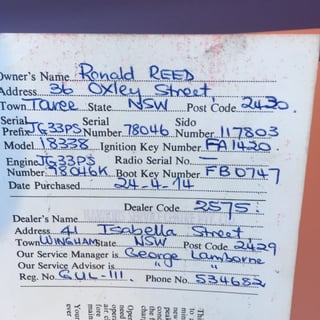 Owner's Name Ronald REED
Address 36 Oxley Street,
Town Taree State NSW Post Code 2430.
Serial Serial Sido
Prefix JG33PS Number 78046 Number 117803
Model 18338 Ignition Key Number FA1420.
Engine JG33PS Radio Serial No. —
Number 78046K Boot Key Number FB0747
Date Purchased 24-4-74
Dealer Code 2575.
Dealer's Name
Address 41 Isabella Street
Town WINGHAM State NSW Post Code 2429
Our Service Manager is George Lamborne
Our Service Advisor is " "
Reg. No. GUL-111. Phone No. 534682